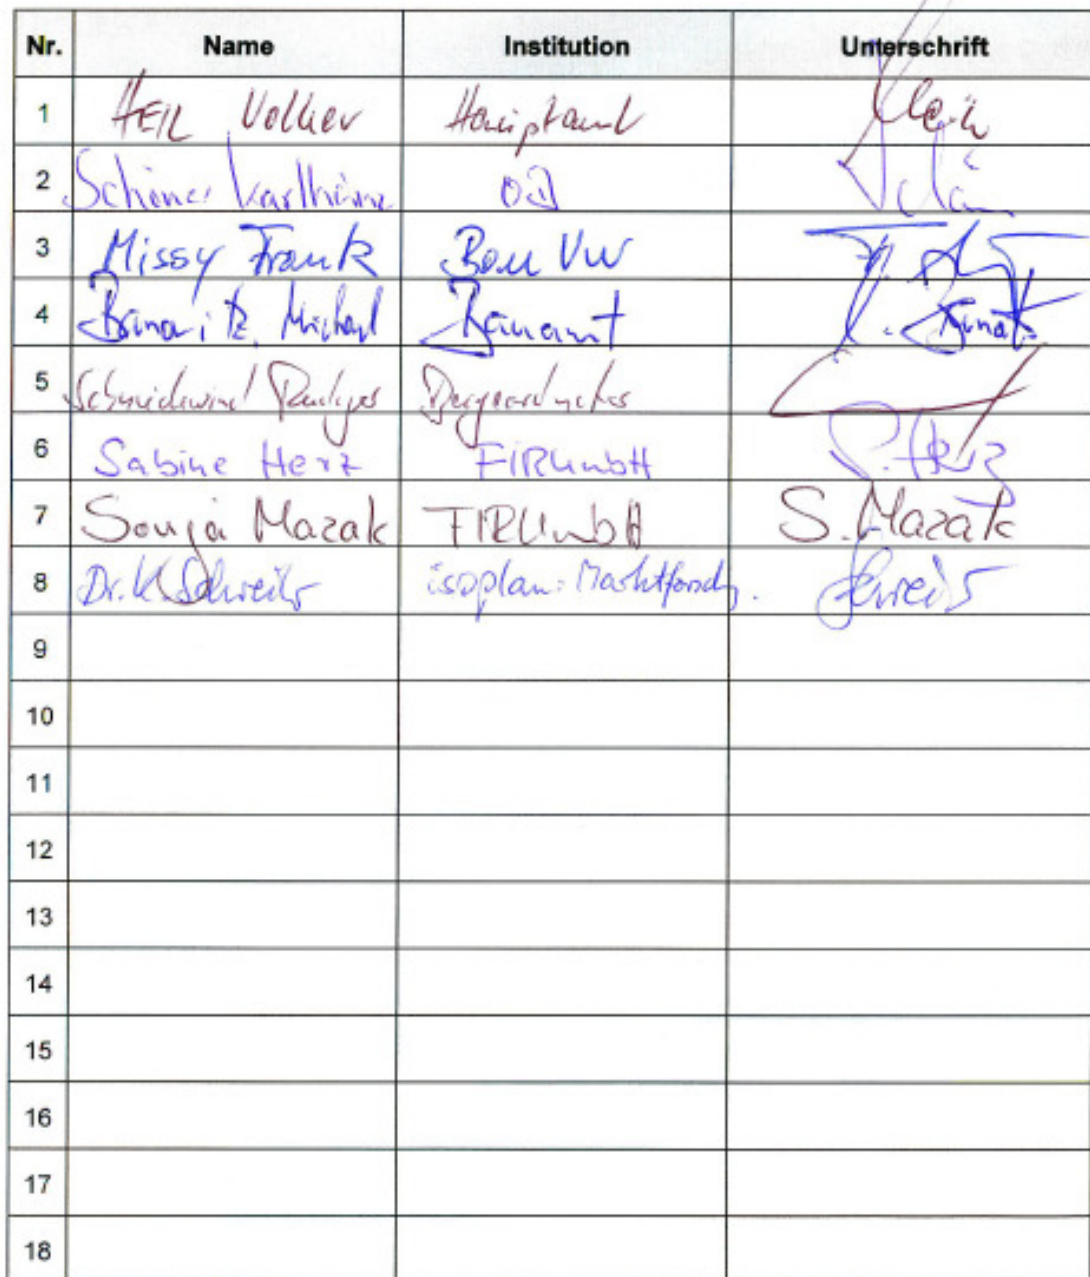 Nr. Name Institution Unterschrift
1 HEIL Volker Hauptamt
2 Schöner Karlheinz
3 Missy Frank Bau VW
4 Michael Bauamt
5 Schneidewind Rüdiger
6 Sabine Herz FIRU mbH S. Herz
7 Sonja Mazak FIRU mbH S. Mazak
8 Dr. K. Schreiber isoplan-Marktforschg. Schreiber
9
10
11
12
13
14
15
16
17
18